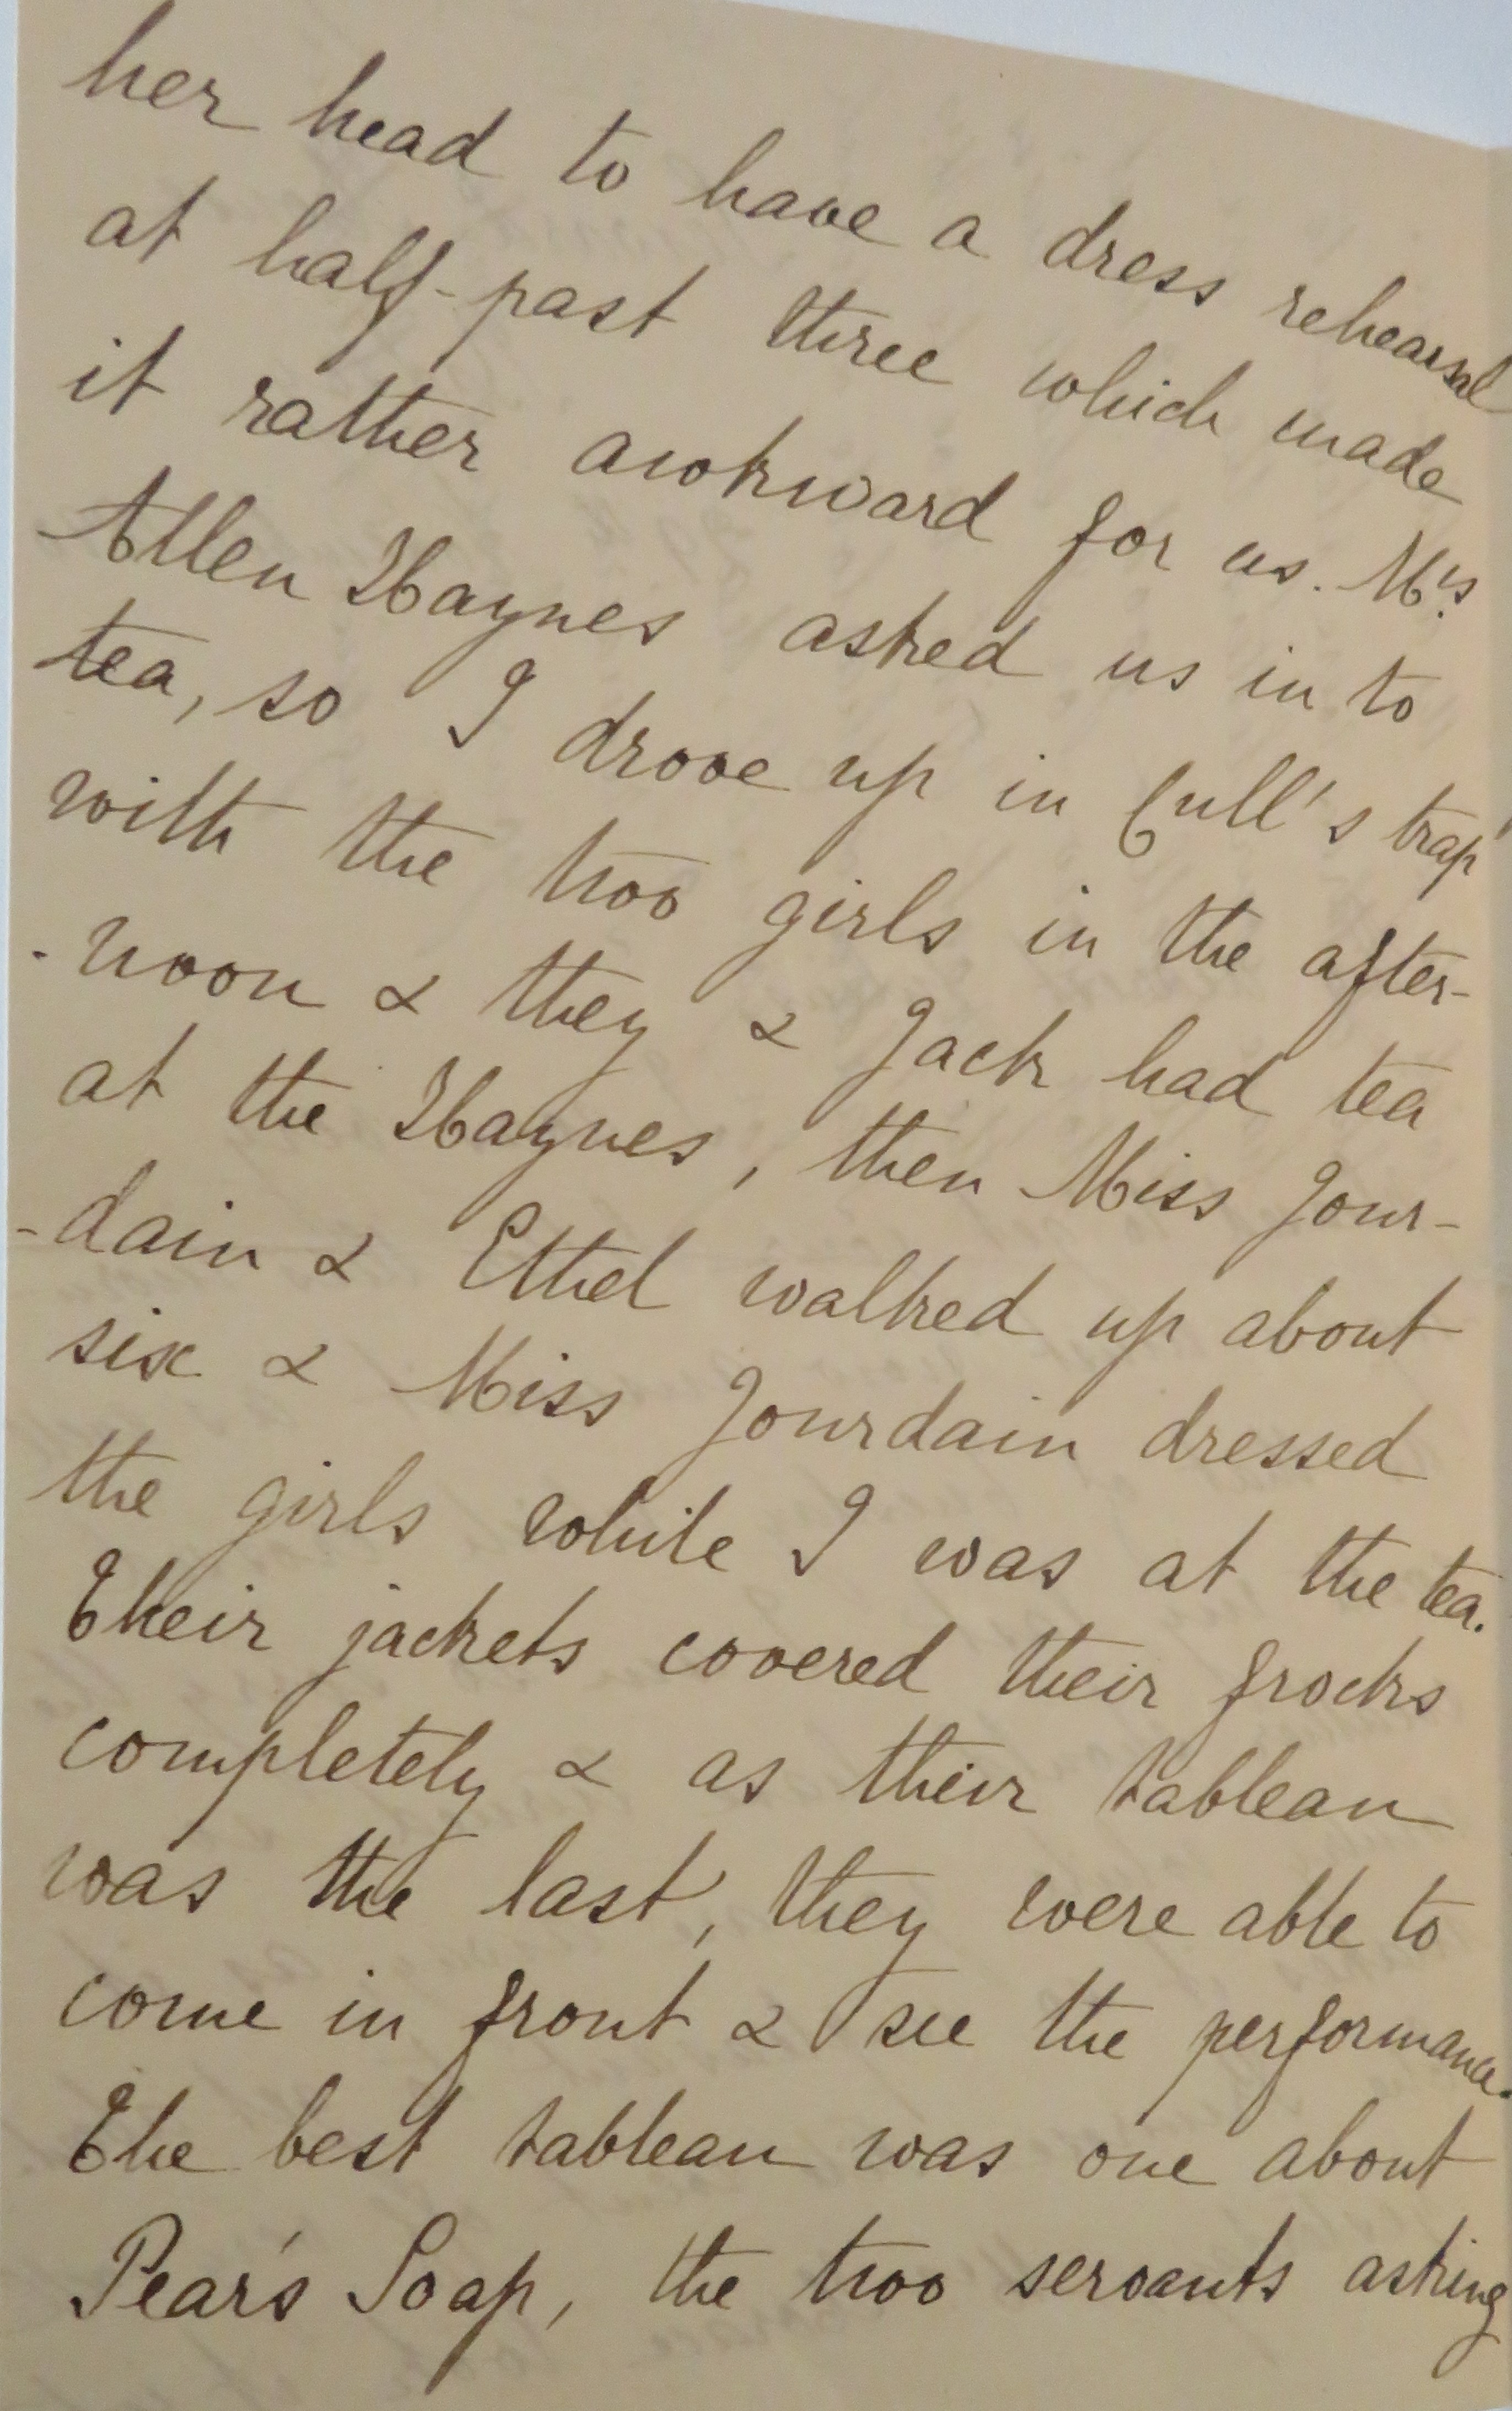 her head to have a dress rehearsal
at half-past three which made
it rather awkward for us. Mrs.
Allen Haynes asked us in to
tea, so I drove up in Cull's trap
with the two girls in the after-
-noon & they & Jack had tea
at the Haynes, then Miss Jour-
-dain & Ethel walked up about
six & Miss Jourdain dressed
the girls while I was at the tea.
Their jackets covered their frocks
completely & as their tableau
was the last, they were able to
come in front & see the performance.
The best tableau was one about
Pear's Soap, the two servants asking